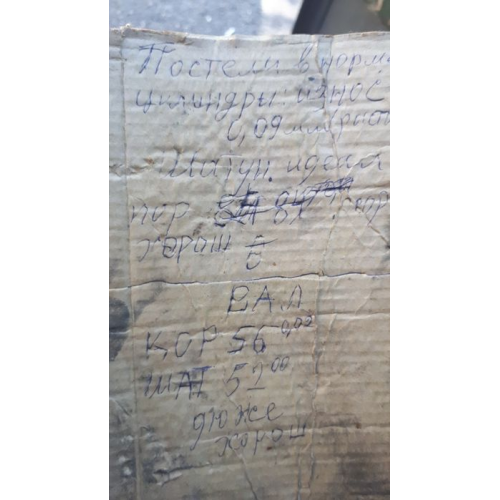 Постели в норм
цилиндры: износ
0,09 мм
Шатун. идеал
пор
хорош
ВАЛ
КОР 56 0,02
ШАТ 52 00
дюже
хорош